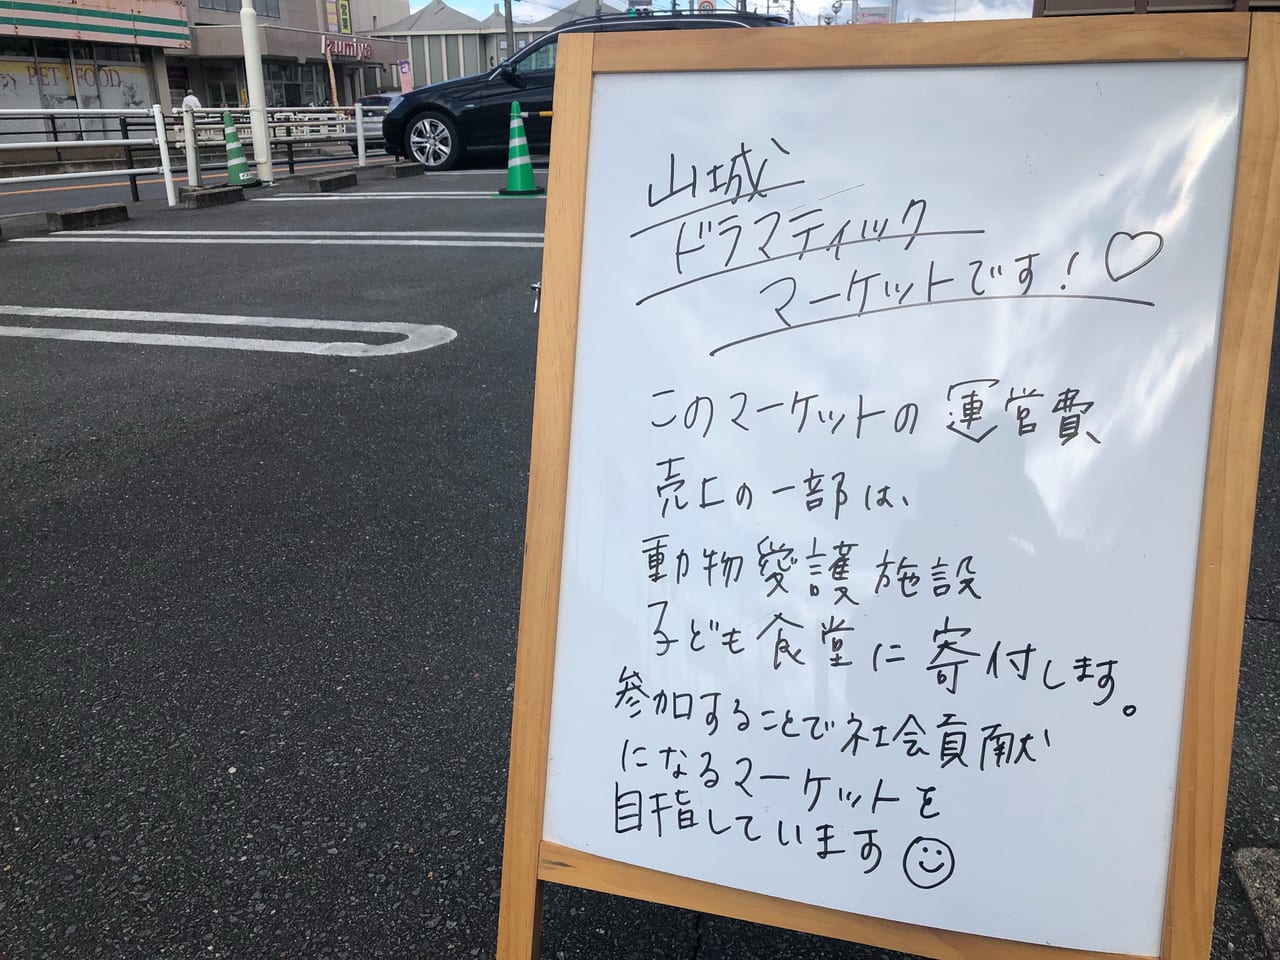 PET FOOD
Izumiya
山城
ドラマティック
マーケットです！♡
このマーケットの運営費
売上の一部は、
動物愛護施設
子ども食堂に寄付します。
参加することで社会貢献
になるマーケットを
目指しています